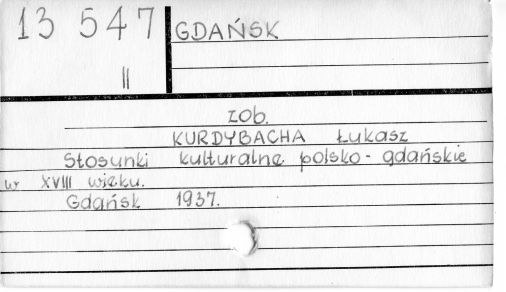 13 547
II
GDAŃSK
zob.
KURDYBACHA Łukasz
Stosunki kulturalne polsko-gdańskie
w XVIII wieku.
Gdańsk 1937.